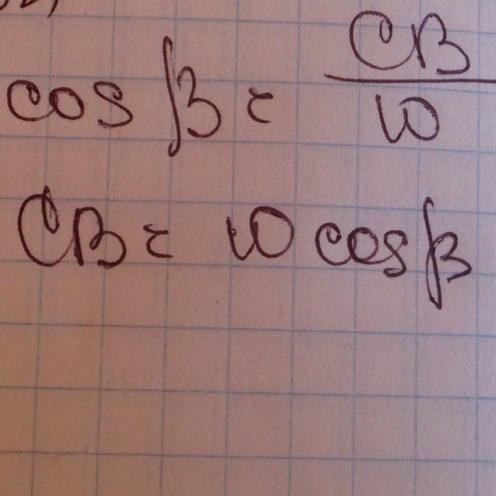 cos β = CB/10
CB = 10 cos β